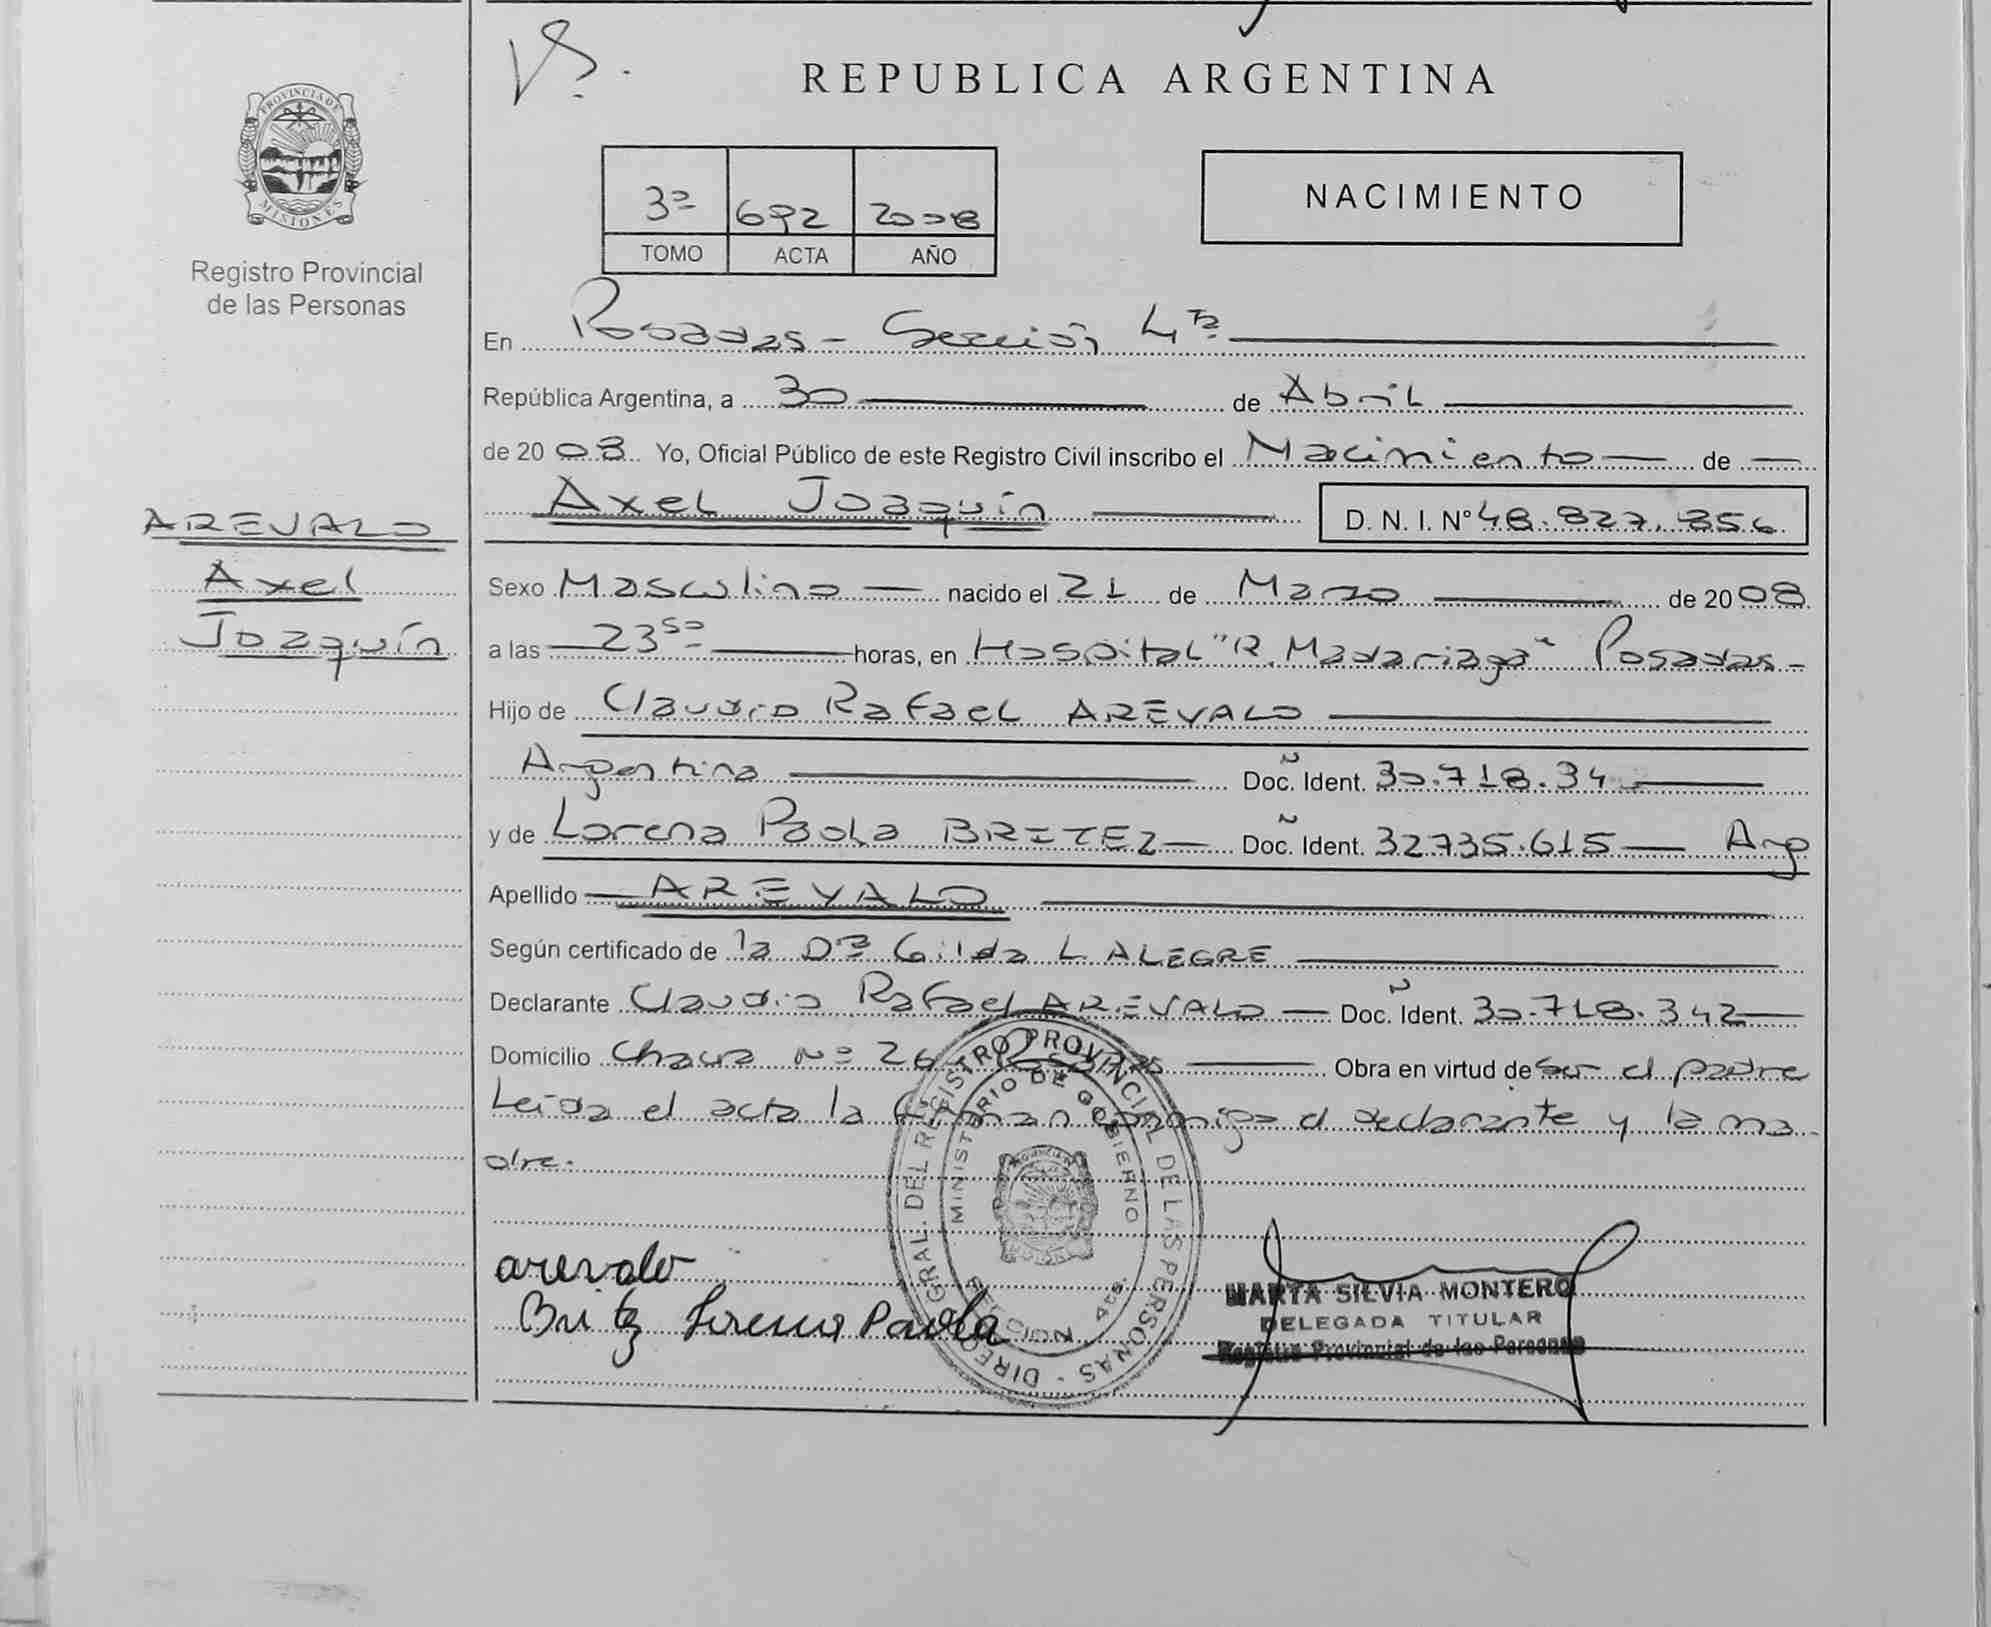 VS.
REPUBLICA ARGENTINA
PROVINCIA DE
MISIONES
Registro Provincial
de las Personas
3º 692 2008
TOMO ACTA AÑO
NACIMIENTO
En Posadas - Sección 4ta
República Argentina, a 30 de Abril
de 20 08 Yo, Oficial Público de este Registro Civil inscribo el Nacimiento de
Axel Joaquín D. N. I. Nº 48.827.856
AREVALO
Axel
Joaquín
Sexo Masculino nacido el 21 de Marzo de 20 08
a las 23 50 horas, en Hospital "R. Madariaga" Posadas -
Hijo de Claudio Rafael AREVALO
Argentina Doc. Ident. 30.718.34
y de Lorena Paola BRITEZ Doc. Ident. 32735.615 Arg
Apellido AREVALO
Según certificado de la Dra Gilda L. ALEGRE
Declarante Claudio Rafael AREVALO Doc. Ident. 30.718.342
Domicilio Chacra Nº 26 Obra en virtud de ser el padre
Leida el acta la firman conmigo el declarante y la ma
dre.
arevalo
Britez Lorena Paola
DIREC GRAL. DEL REGISTRO PROVINCIAL DE LAS PERSONAS -
MINISTERIO DE GOBIERNO
SECCION 4ta.
MARTA SILVIA MONTERO
DELEGADA TITULAR
Registro Provincial de las Personas